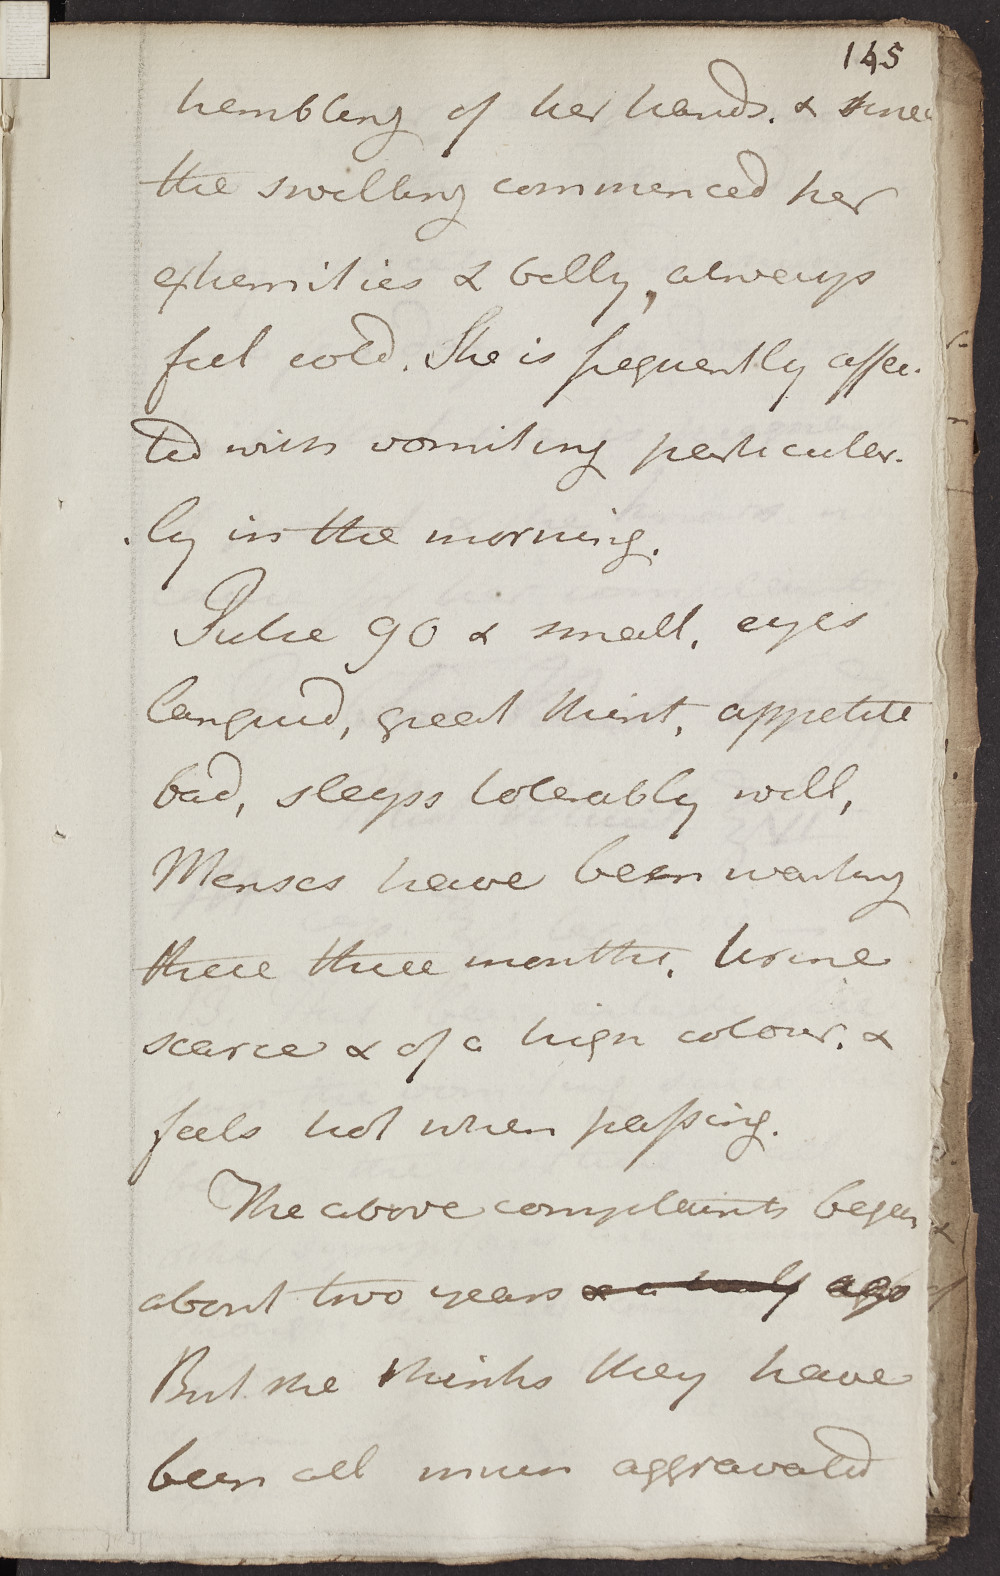 145
trembling of her hands. & since
the swelling commenced her
extremities & belly, always
feel cold. She is frequently affec-
ted with vomiting particular-
ly in the morning.
Pulse 90 & small, eyes
languid, great thirst, appetite
bad, sleeps tolerably well,
Menses have been wanting
these three months, Urine
scarce & of a high colour, &
feels hot when passing.
The above complaints began
about two years & a half ago
But she thinks they have
been all much aggravated